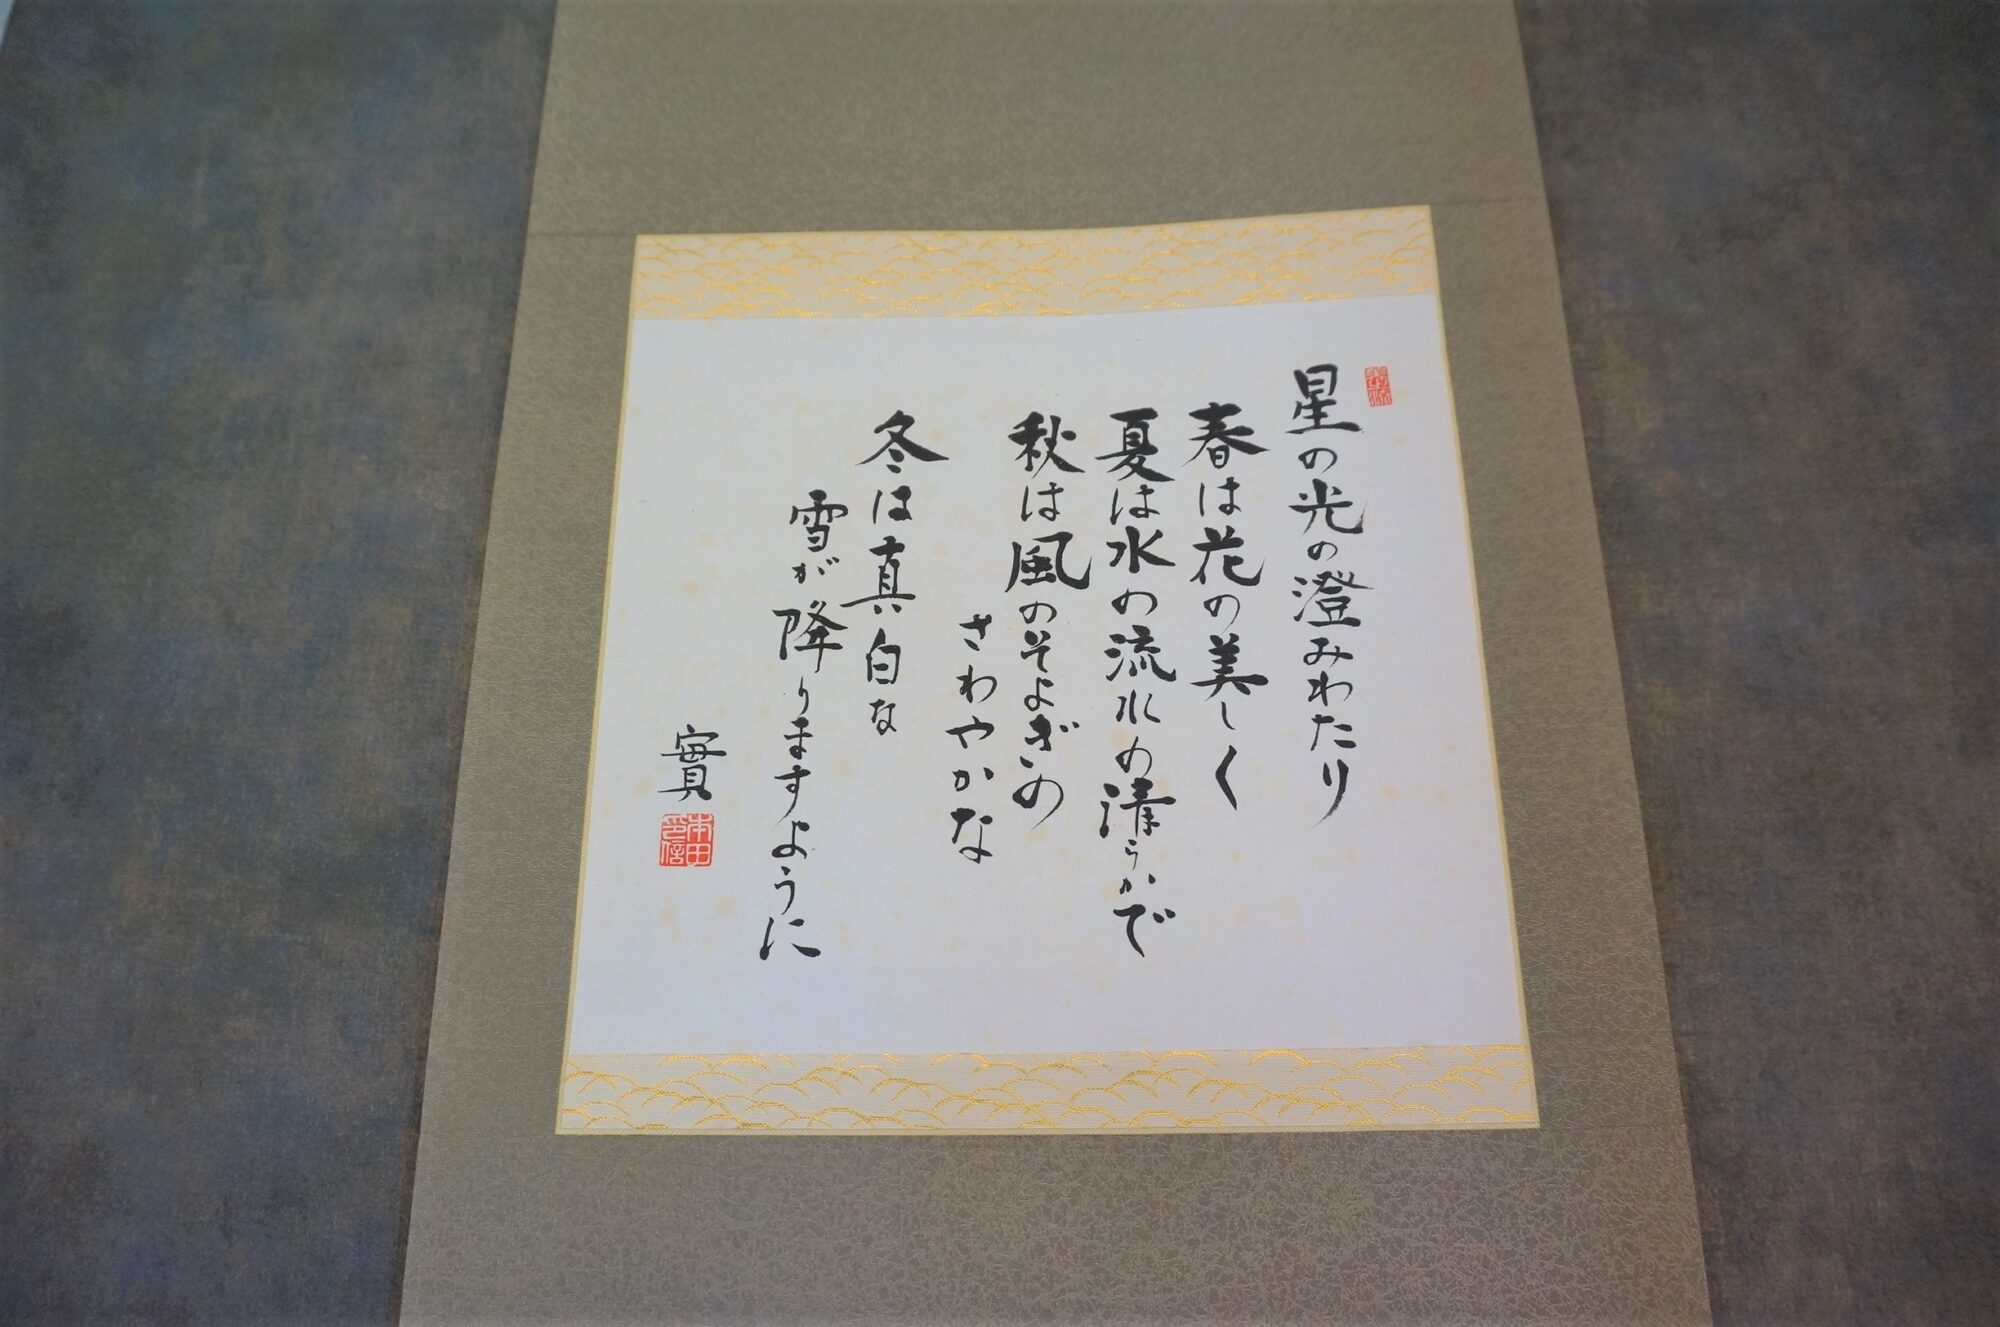 星の光の澄みわたり
春は花の美しく
夏は水の流水の清らかで
秋は風のそよぎの
さわやかな
冬は真白な
雪が降りますように
實
本田
印信